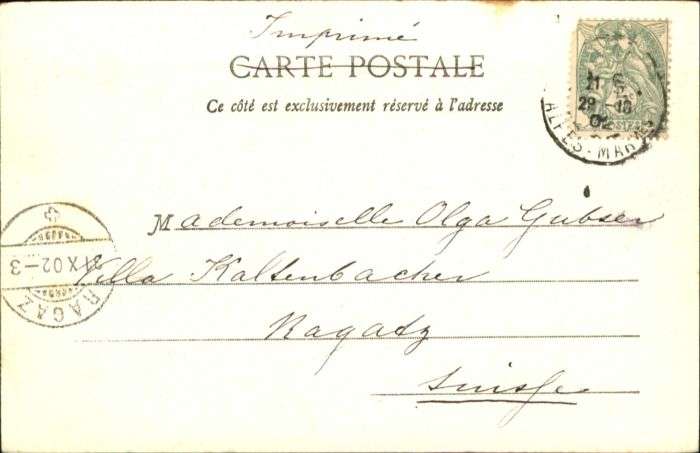 Imprimé
CARTE POSTALE
Ce côté est exclusivement réservé à l'adresse
21
29 -10
02
ALPES-MAR
Mademoiselle Olga Gubser
Villa Kaltenbacher
Ragatz
Suisse
1 X 02-3
RAGAZ